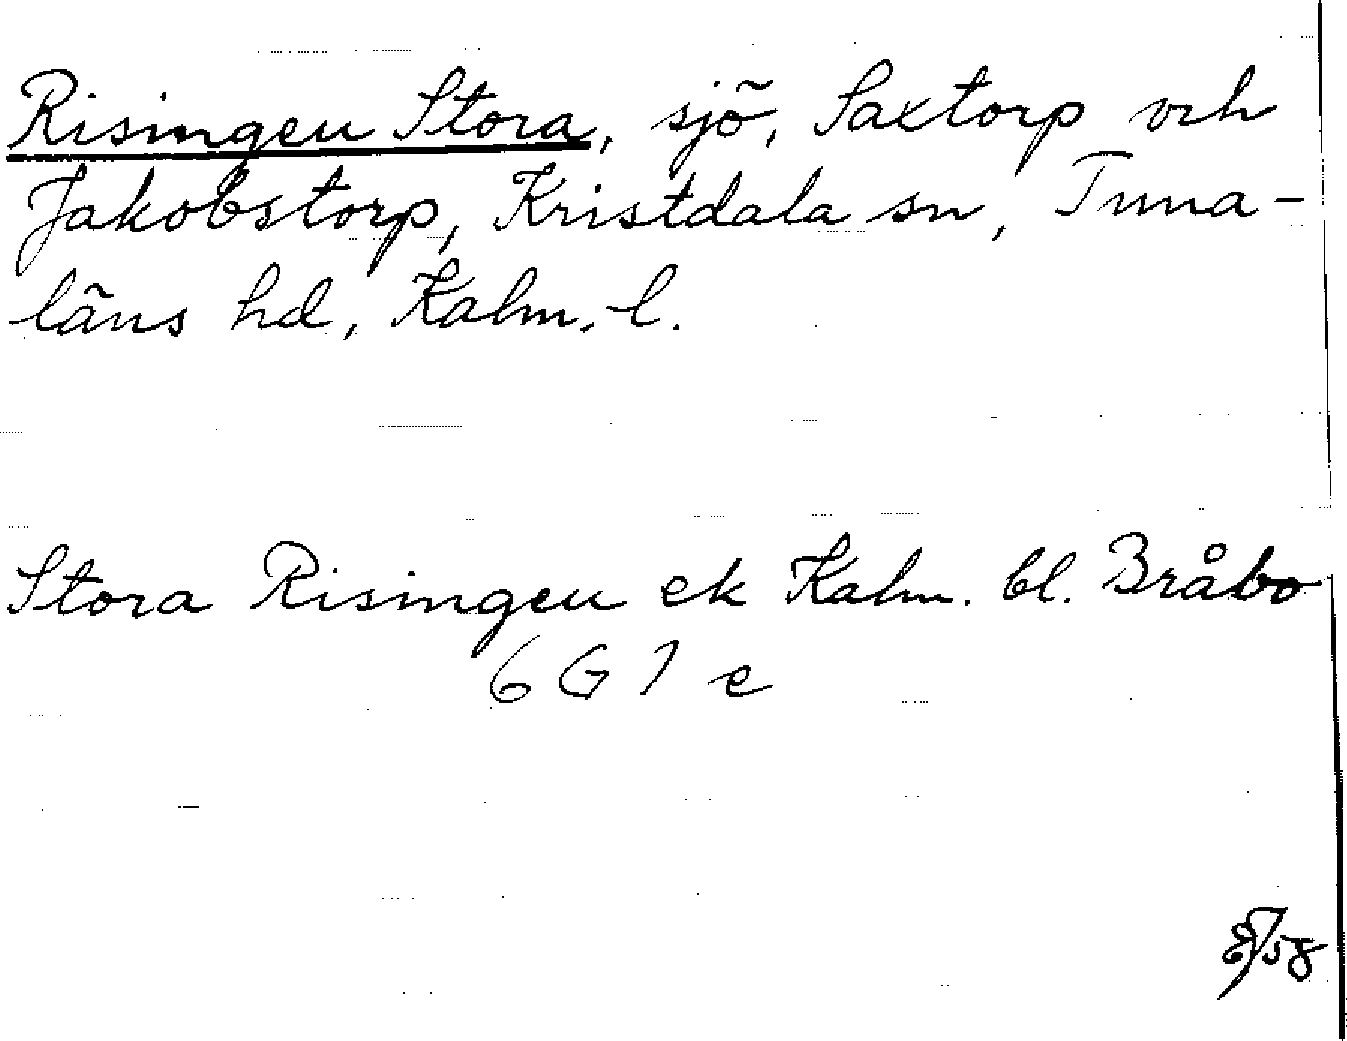 Risingen Stora, sjö, Saxtorp och
Jakobstorp, Kristdala sn, Tuna-
läns hd, Kalm. l.
Stora Risingen ek Kalm. bl. Bråbo
6 G 7 e